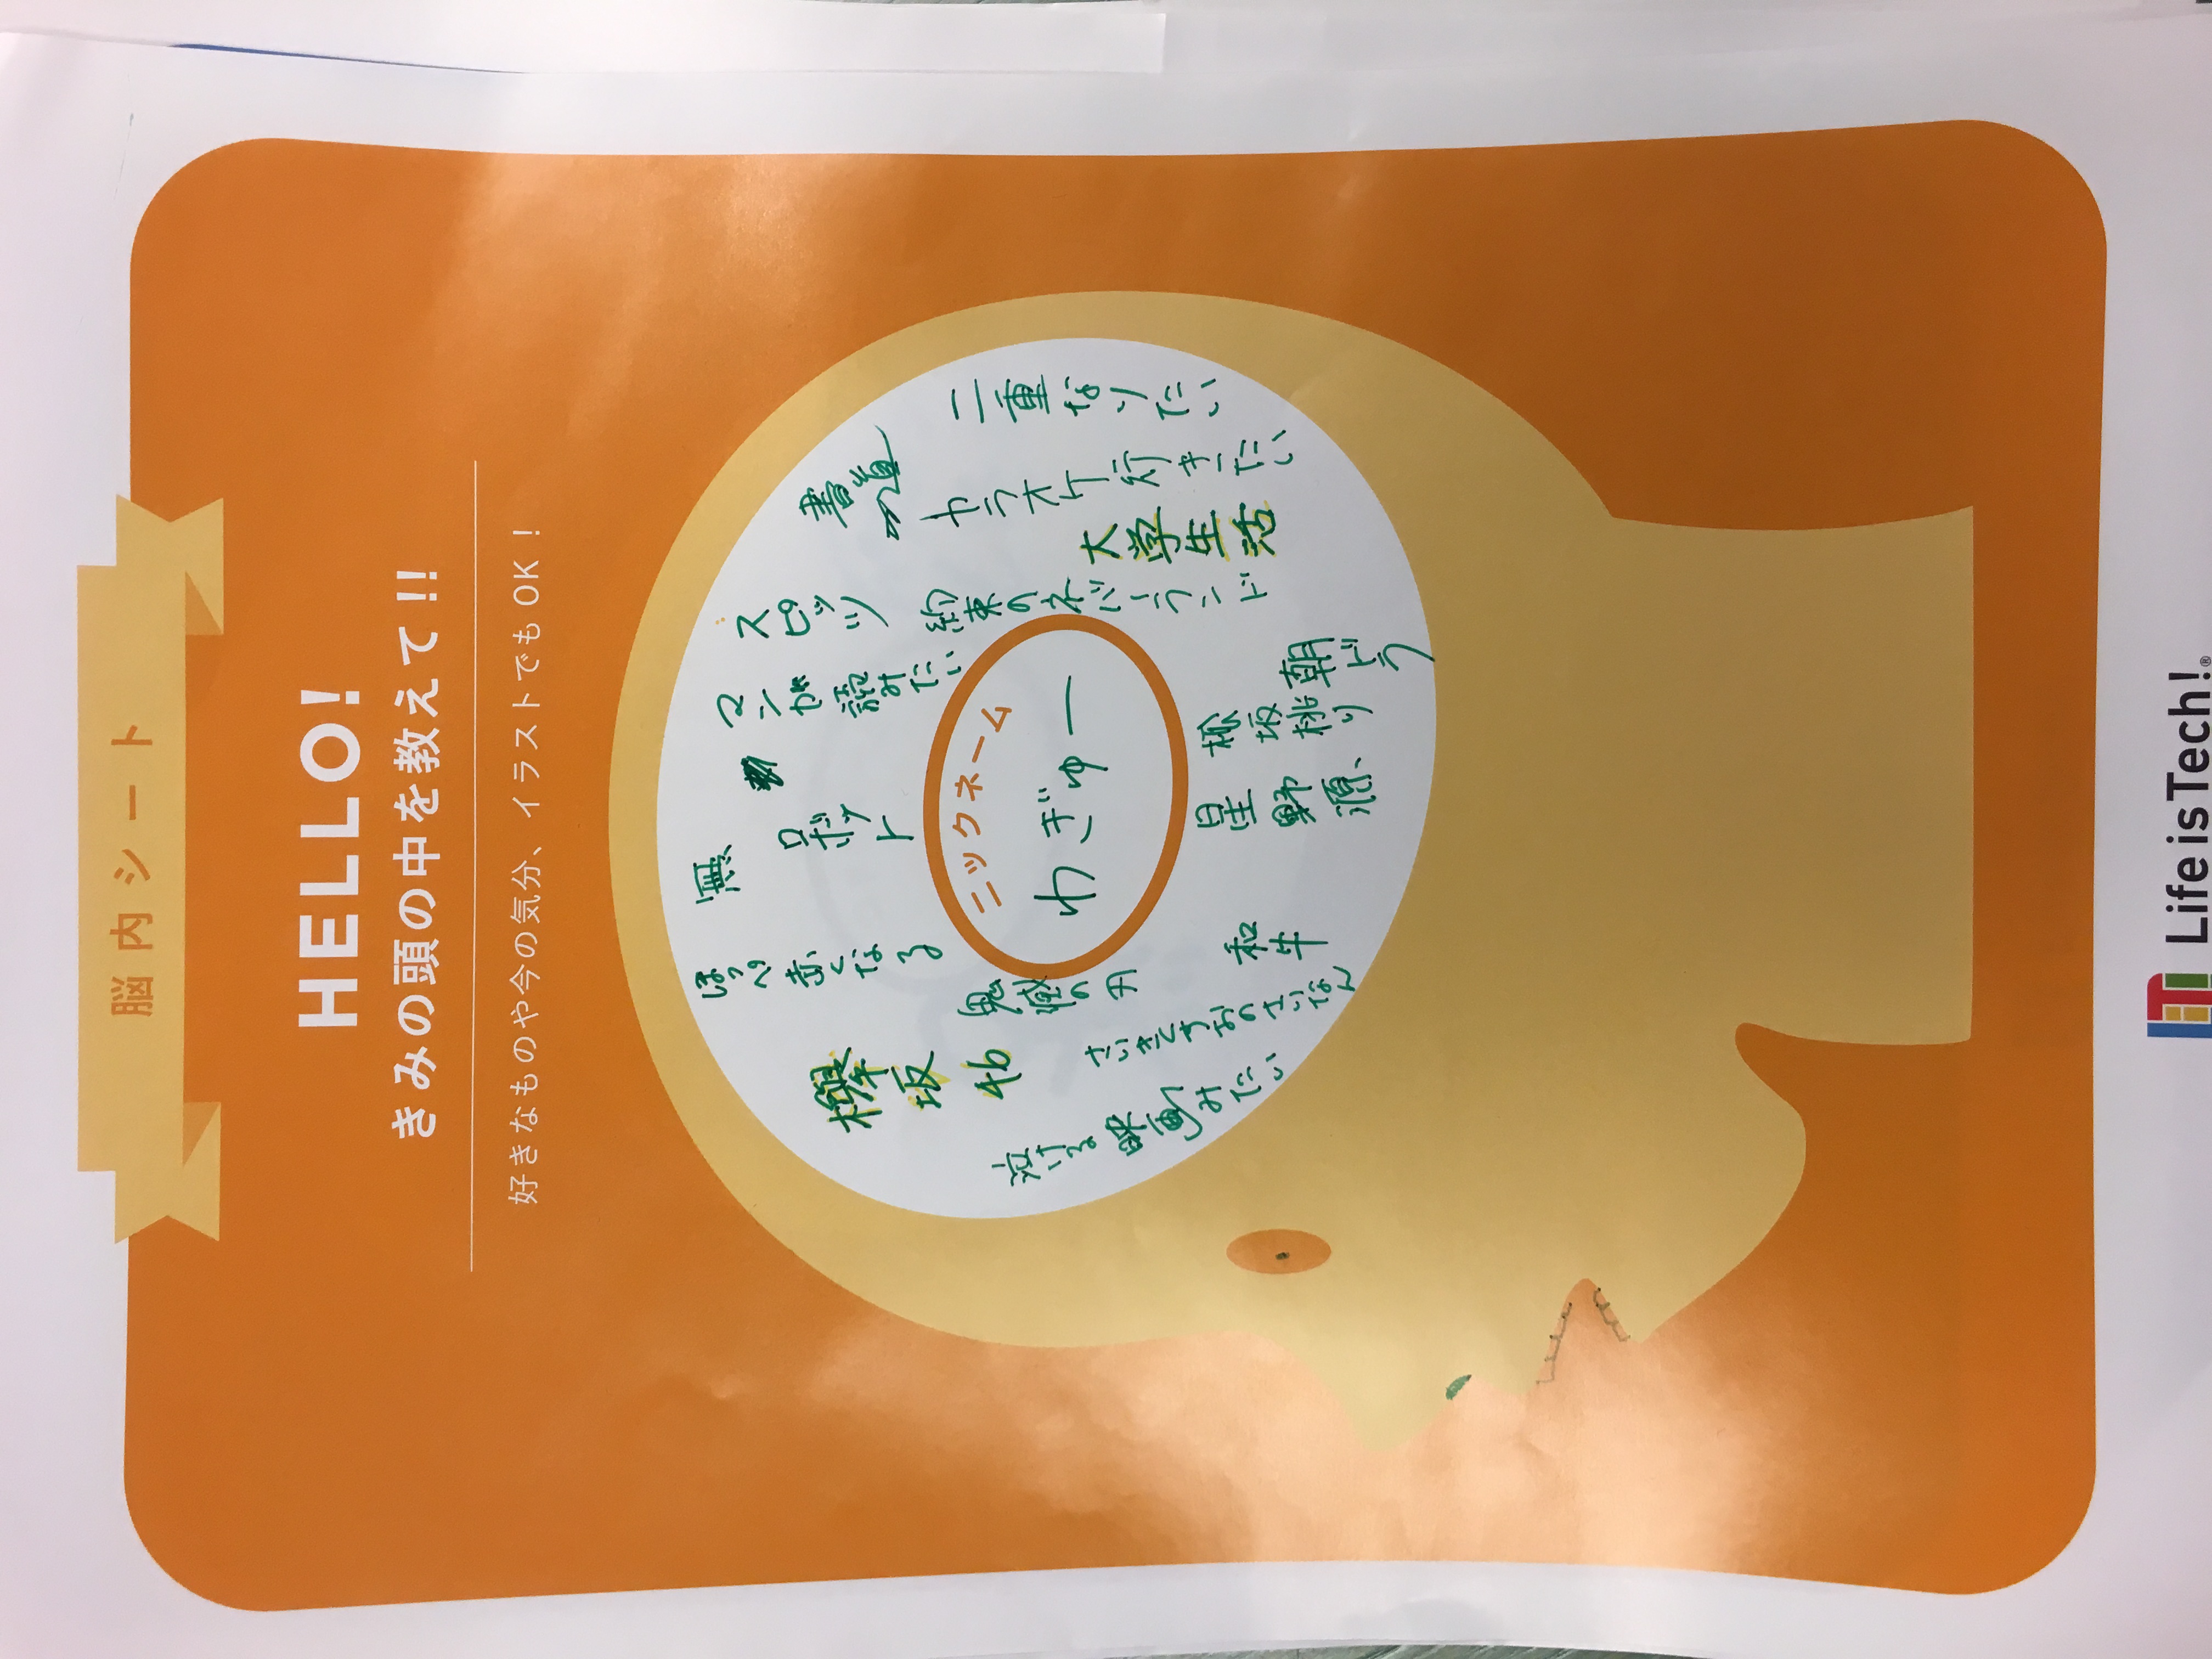 脳内シート
HELLO!
きみの頭の中を教えて!!
好きなものや今の気分、イラストでもOK!
二重なりたい
書道
カラオケ行きたい
大学生活
スピッツ
約束のネバーランド
マンガ読みたい
ロボット
無
ほっぺ赤くなる
欅坂46
鬼滅の刃
泣ける映画みたい
さいきくすおのさいなん
和牛
星野源
松坂桃り
朝ドラ
ニックネーム
わぎゅー
Life is Tech!®